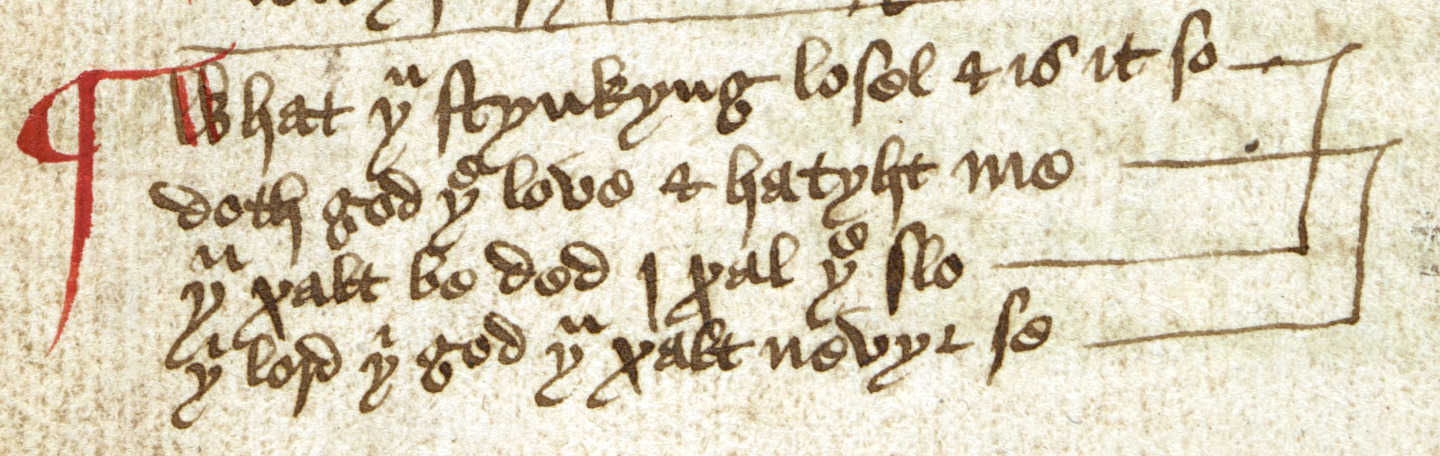 What yᵘ stynkyng losel & is it so
doth god yᵉ love & hatyht me
yᵘ xalt be ded I xal yᵉ slo
yⁱ lord yⁱ god yᵘ xalt nevyr se